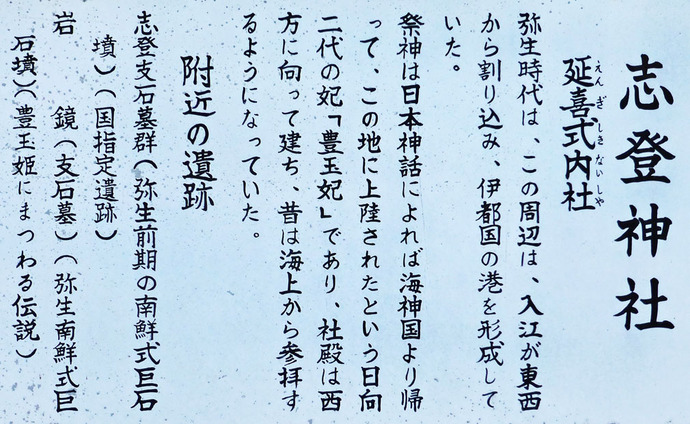 志登神社
延喜式内社
えんぎしきないしや
弥生時代は、この周辺は、入江が東西
から割り込み、伊都国の港を形成して
いた。
祭神は日本神話によれば海神国より帰
って、この地に上陸されたという日向
二代の妃「豊玉妃」であり、社殿は西
方に向って建ち、昔は海上から参拝す
るようになっていた。
附近の遺跡
志登支石墓群(弥生前期の南鮮式巨石
墳)(国指定遺跡)
岩 鏡(支石墓)(弥生南鮮式巨
石墳)(豊玉姫にまつわる伝説)